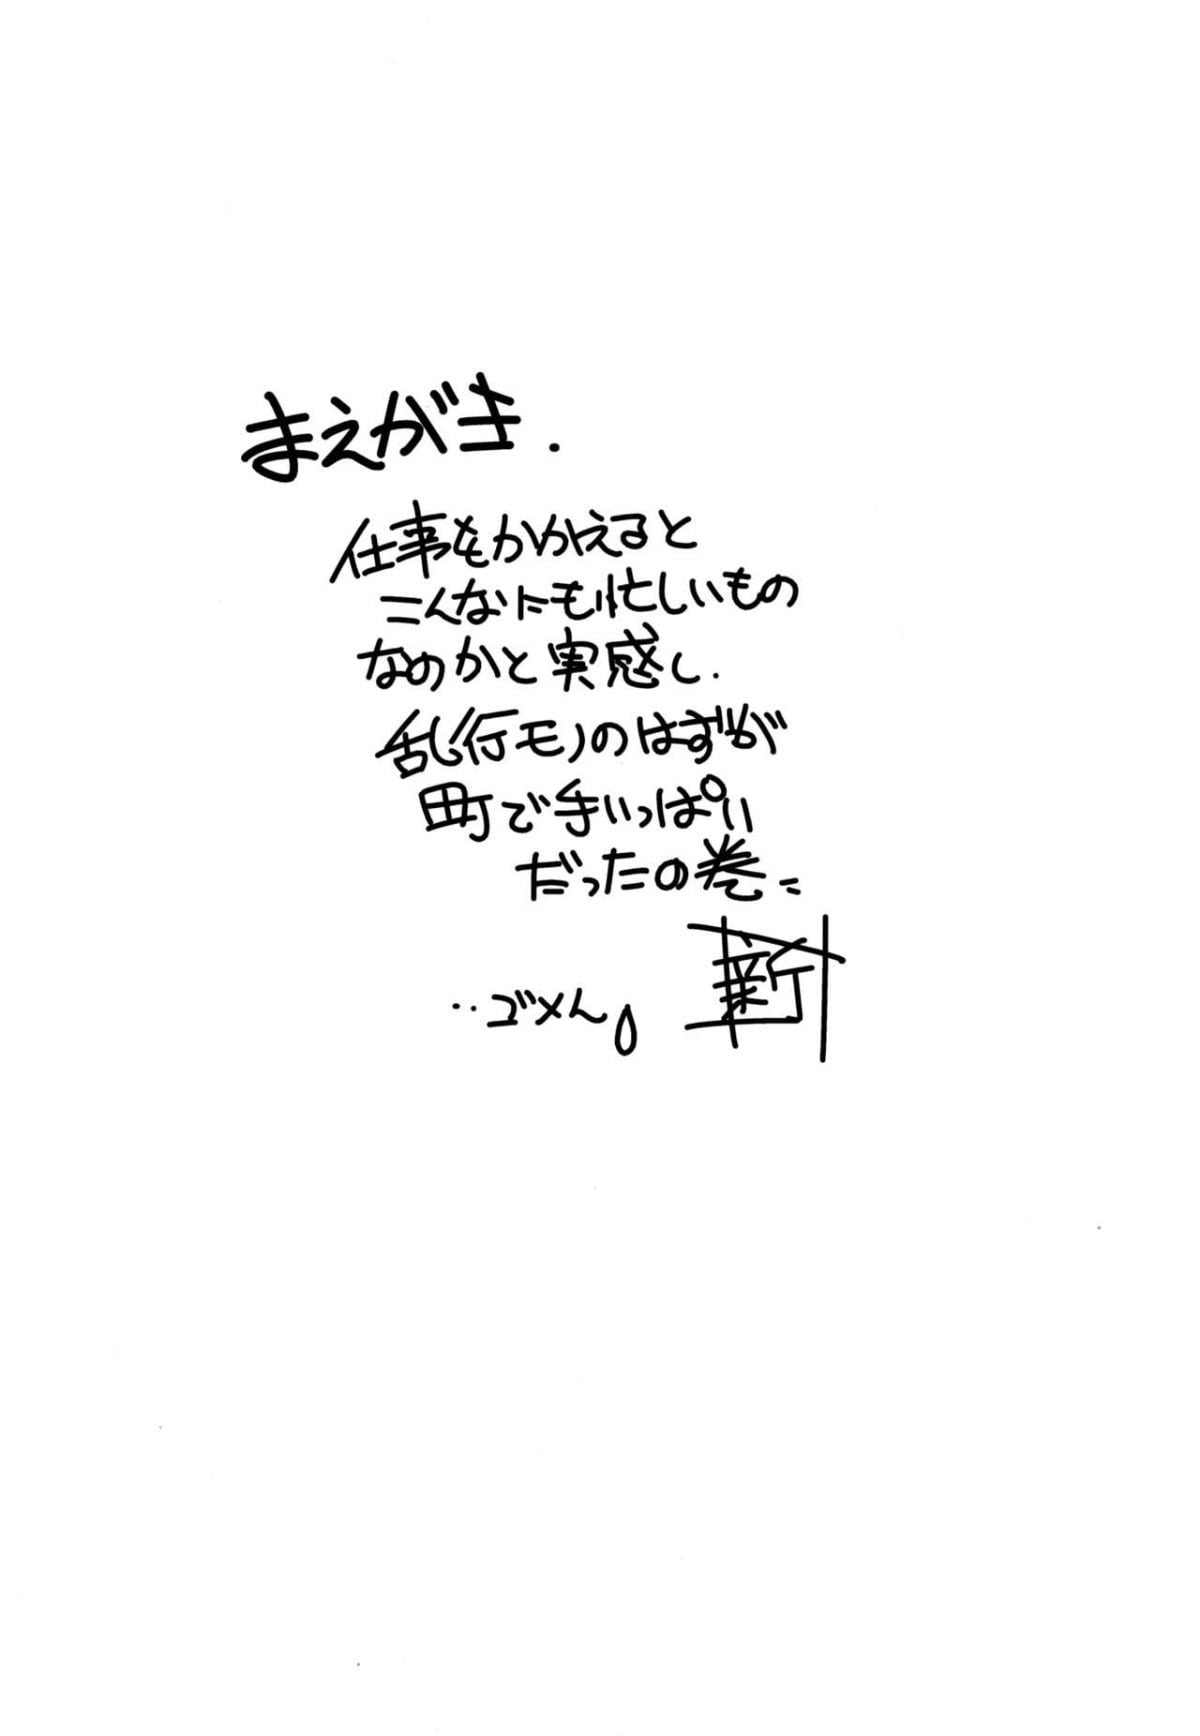 まえがき.
仕事をかかえると
こんなにも忙しいもの
なのかと実感し.
乱行モノのはずが
町で手いっぱい
だったの巻=
新
‥ゴメん。